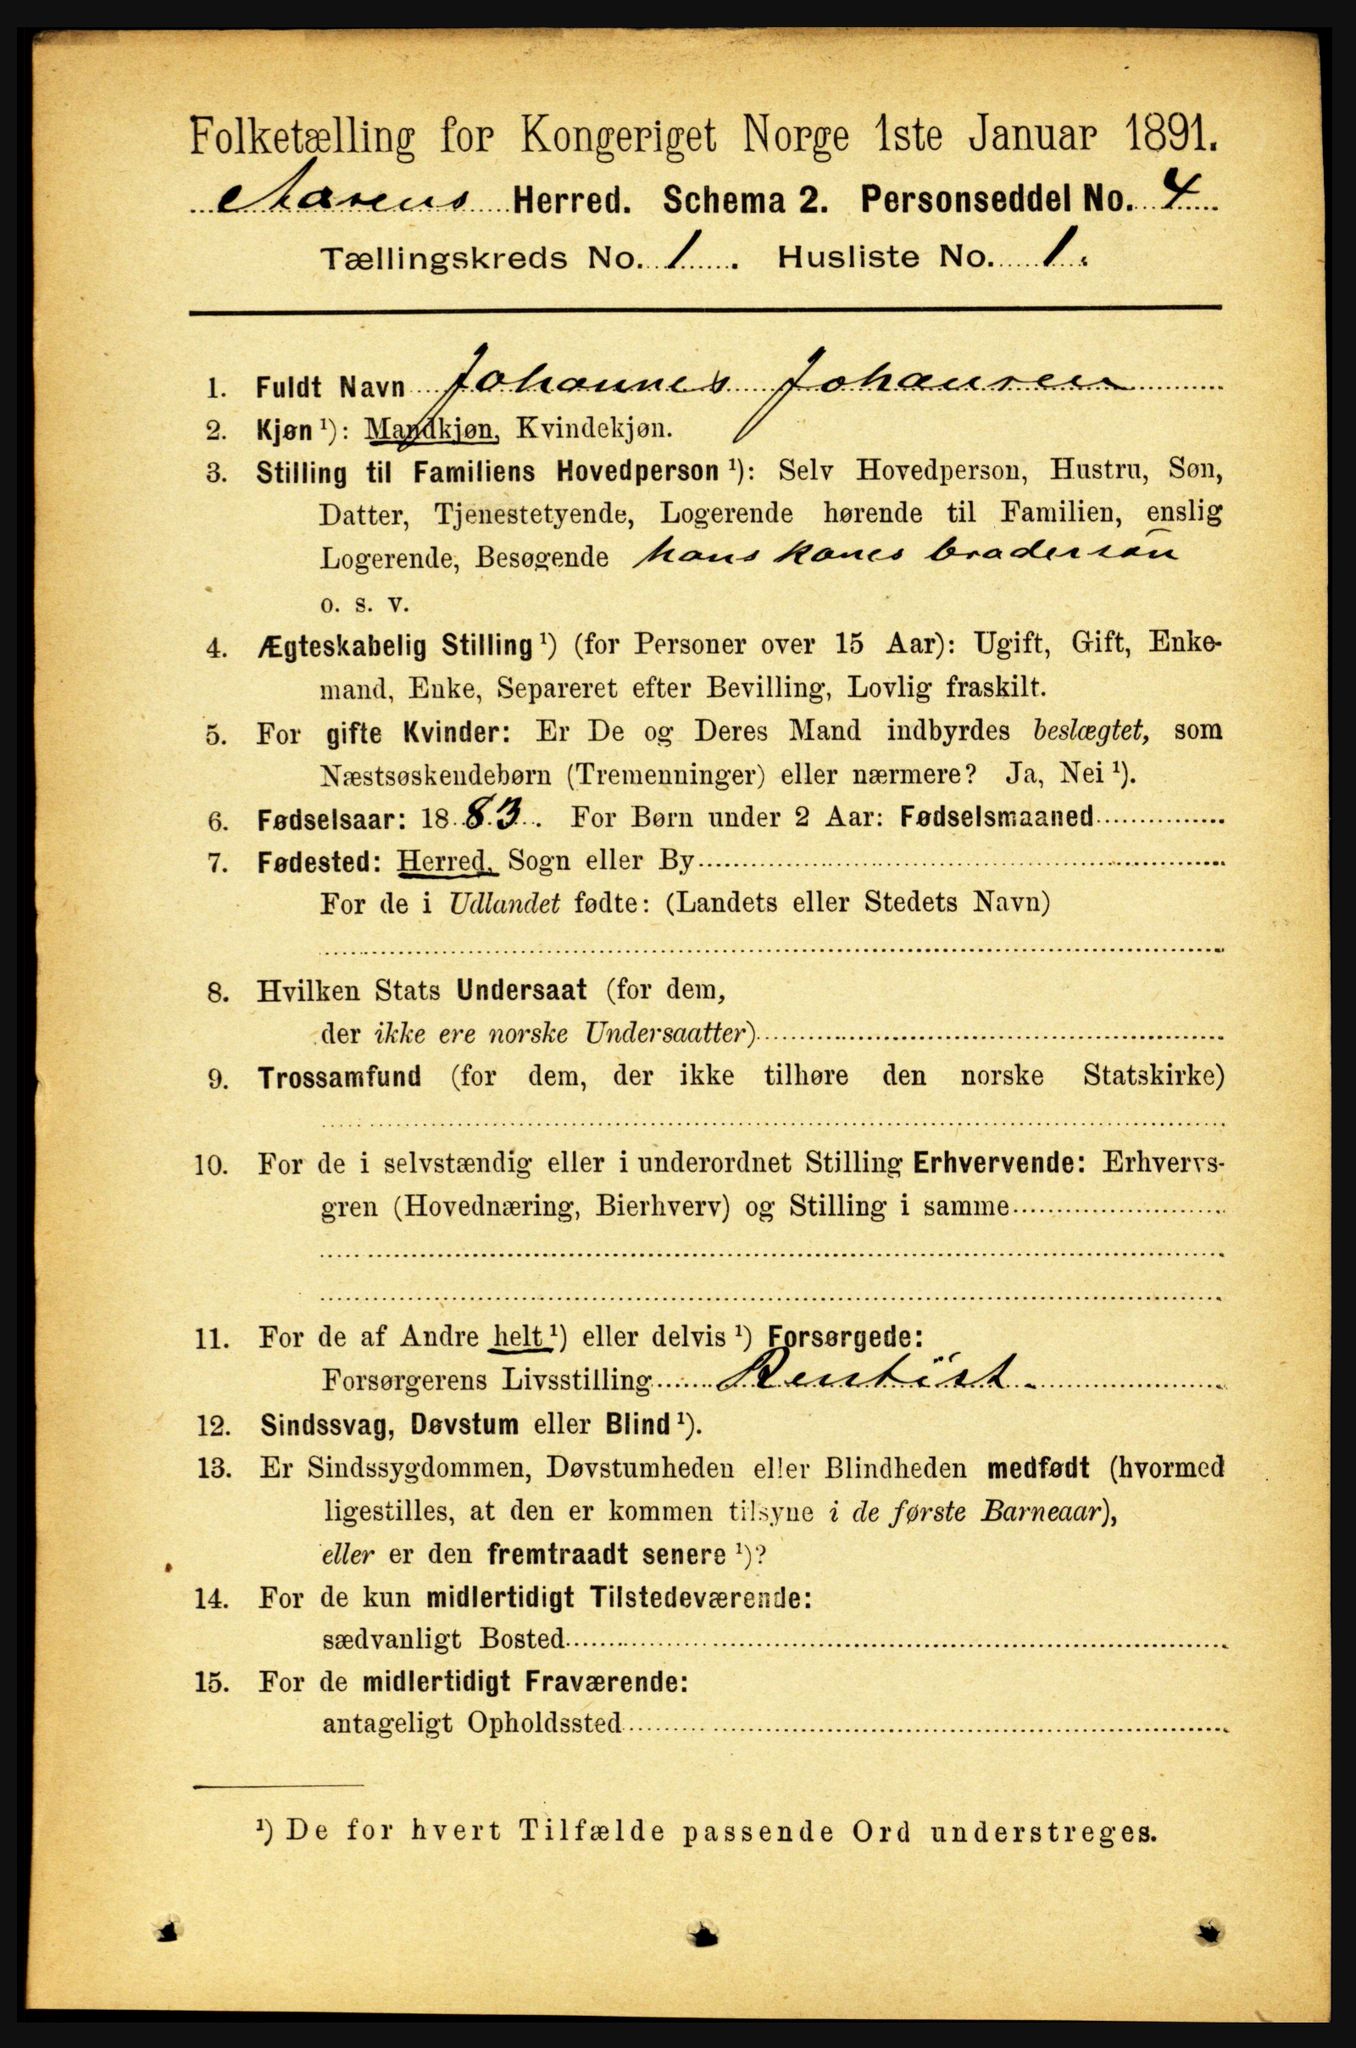 Folketælling for Kongeriget Norge 1ste Januar 1891.
Herred. Schema 2. Personseddel No. 4
Tællingskreds No. 1. Husliste No. 1.
1. Fuldt Navn Johannes Johansen
2. Kjøn ¹): Mandkjøn, Kvindekjøn.
3. Stilling til Familiens Hovedperson ¹): Selv Hovedperson, Hustru, Søn,
Datter, Tjenestetyende, Logerende hørende til Familien, enslig
Logerende, Besøgende hans kones brodersøn
o. s. v.
4. Ægteskabelig Stilling ¹) (for Personer over 15 Aar): Ugift, Gift, Enke-
mand, Enke, Separeret efter Bevilling, Lovlig fraskilt.
5. For gifte Kvinder: Er De og Deres Mand indbyrdes beslægtet, som
Næstsøskendebørn (Tremenninger) eller nærmere? Ja, Nei ¹).
6. Fødselsaar: 1883. For Børn under 2 Aar: Fødselsmaaned
7. Fødested: Herred, Sogn eller By
For de i Udlandet fødte: (Landets eller Stedets Navn)
8. Hvilken Stats Undersaat (for dem,
der ikke ere norske Undersaatter)
9. Trossamfund (for dem, der ikke tilhøre den norske Statskirke)
10. For de i selvstændig eller i underordnet Stilling Erhvervende: Erhvervs-
gren (Hovednæring, Bierhverv) og Stilling i samme
11. For de af Andre helt ¹) eller delvis ¹) Forsørgede:
Forsørgerens Livsstilling Rentist
12. Sindssvag, Døvstum eller Blind ¹).
13. Er Sindssygdommen, Døvstumheden eller Blindheden medfødt (hvormed
ligestilles, at den er kommen tilsyne i de første Barneaar),
eller er den fremtraadt senere ¹)?
14. For de kun midlertidigt Tilstedeværende:
sædvanligt Bosted
15. For de midlertidigt Fraværende:
antageligt Opholdssted
¹) De for hvert Tilfælde passende Ord understreges.